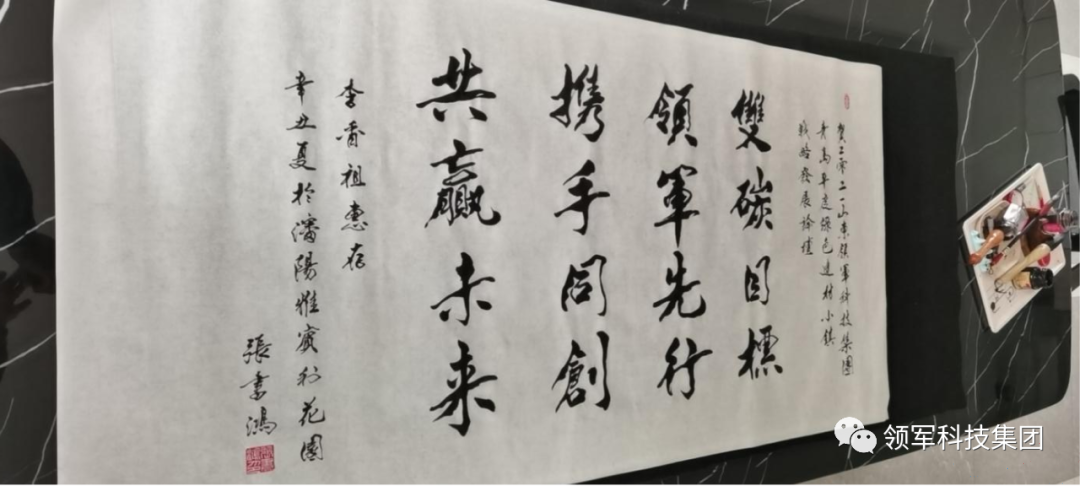 賀二零二一山東領軍科技集團
青島平度綠色建材小鎮
戰略發展論壇
雙碳目標
領軍先行
携手同創
共贏未来
李香祖惠存
辛丑夏於瀋陽雅賓利花園
張書鴻
领军科技集团